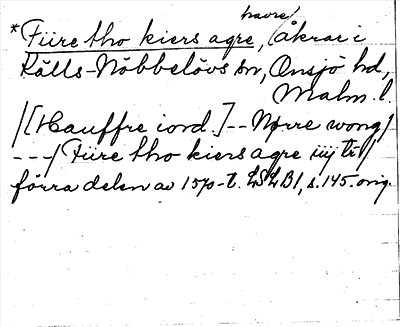 havre/
*Fiire tho kiers agre, (åkrar i
Källs-Nöbbelövs sn, Onsjö hd,
Malm. l.
/[Hauffre iord.]--Nørre wong/
---/ Fiire tho kiers agre iiij tr/
förra delen av 1570-t. LSLB1, s. 145. orig.